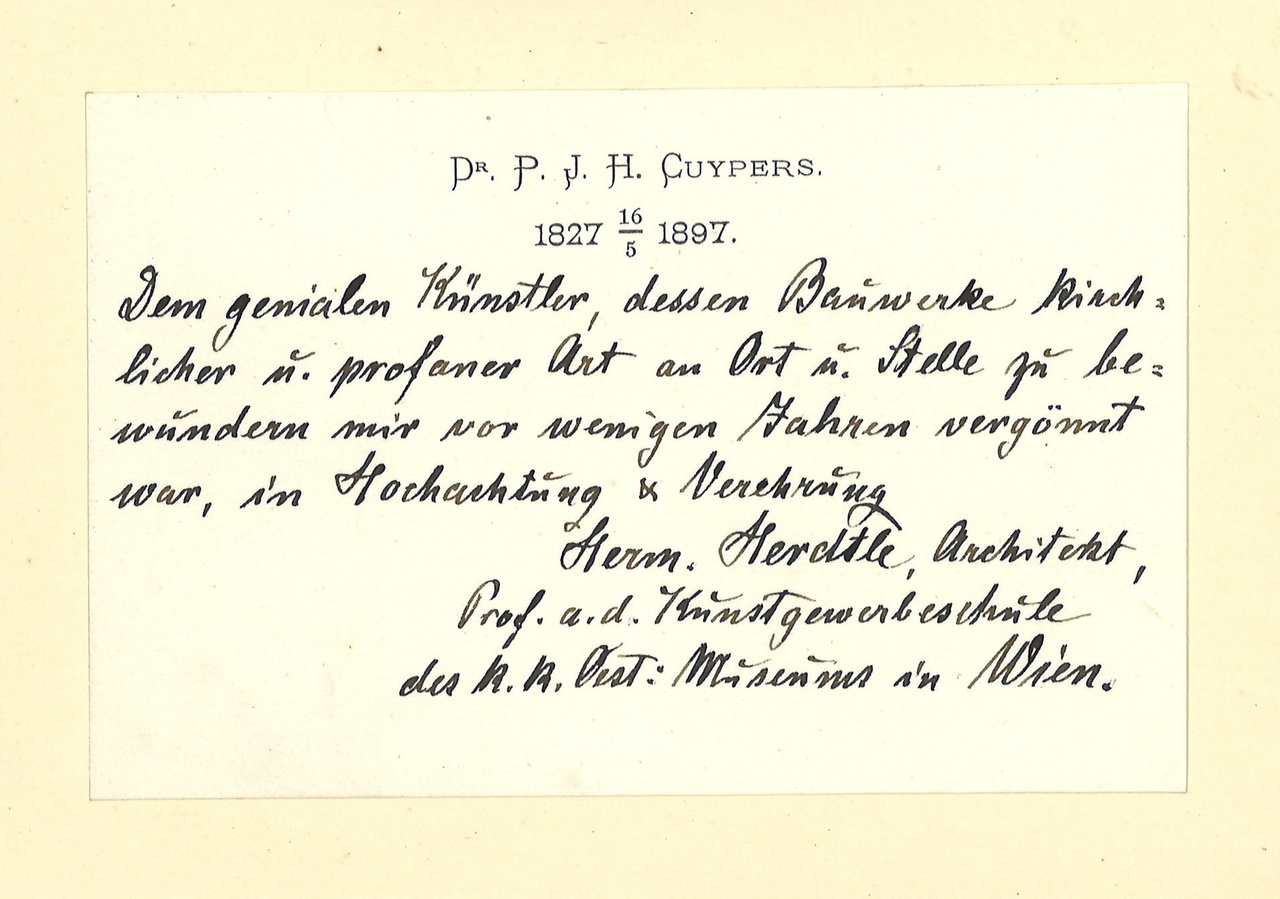 DR. P. J. H. CUYPERS.
1827 16/5 1897.
Dem genialen Künstler, dessen Bauwerke kirch=
licher u. profaner Art an Ort u. Stelle zu be=
wundern mir vor wenigen Jahren vergönnt
war, in Hochachtung & Verehrung
Herm. Herdtle, Architekt,
Prof. a. d. Kunstgewerbeschule
des k. k. Oest: Museums in Wien.